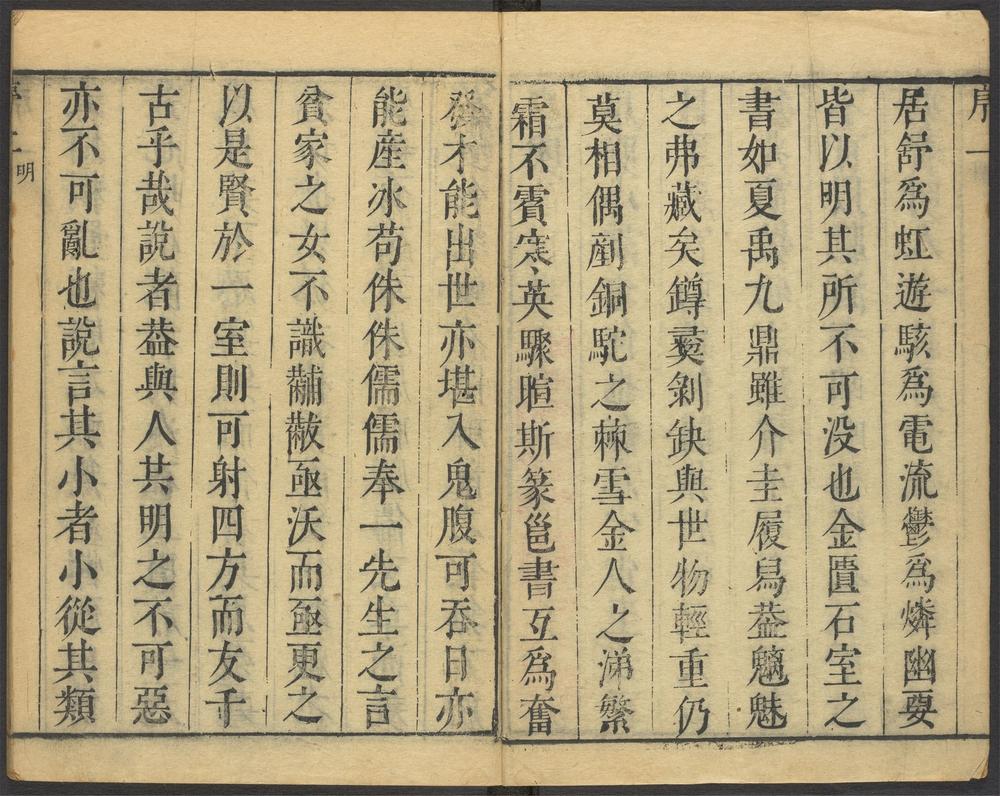 序一
居舒為虹遊駭為電流鬱為燐幽要
皆以明其所不可没也金匱石室之
書如夏禹九鼎雖介圭履舄葢魑魅
之弗藏矣鐏彛剝缺與世物輕重仍
莫相偶剷銅駝之棘雪金人之涕繁
霜不賓寒英驟暄斯篆邕書互為奮
發才能出世亦堪入鬼腹可吞日亦
能産冰苟侏侏儒儒奉一先生之言
貧家之女不識黼黻亟沃而亟更之
以是賢於一室則可射四方而友千
古乎哉說者葢與人共明之不可惡
亦不可亂也說言其小者小從其類
序二 明